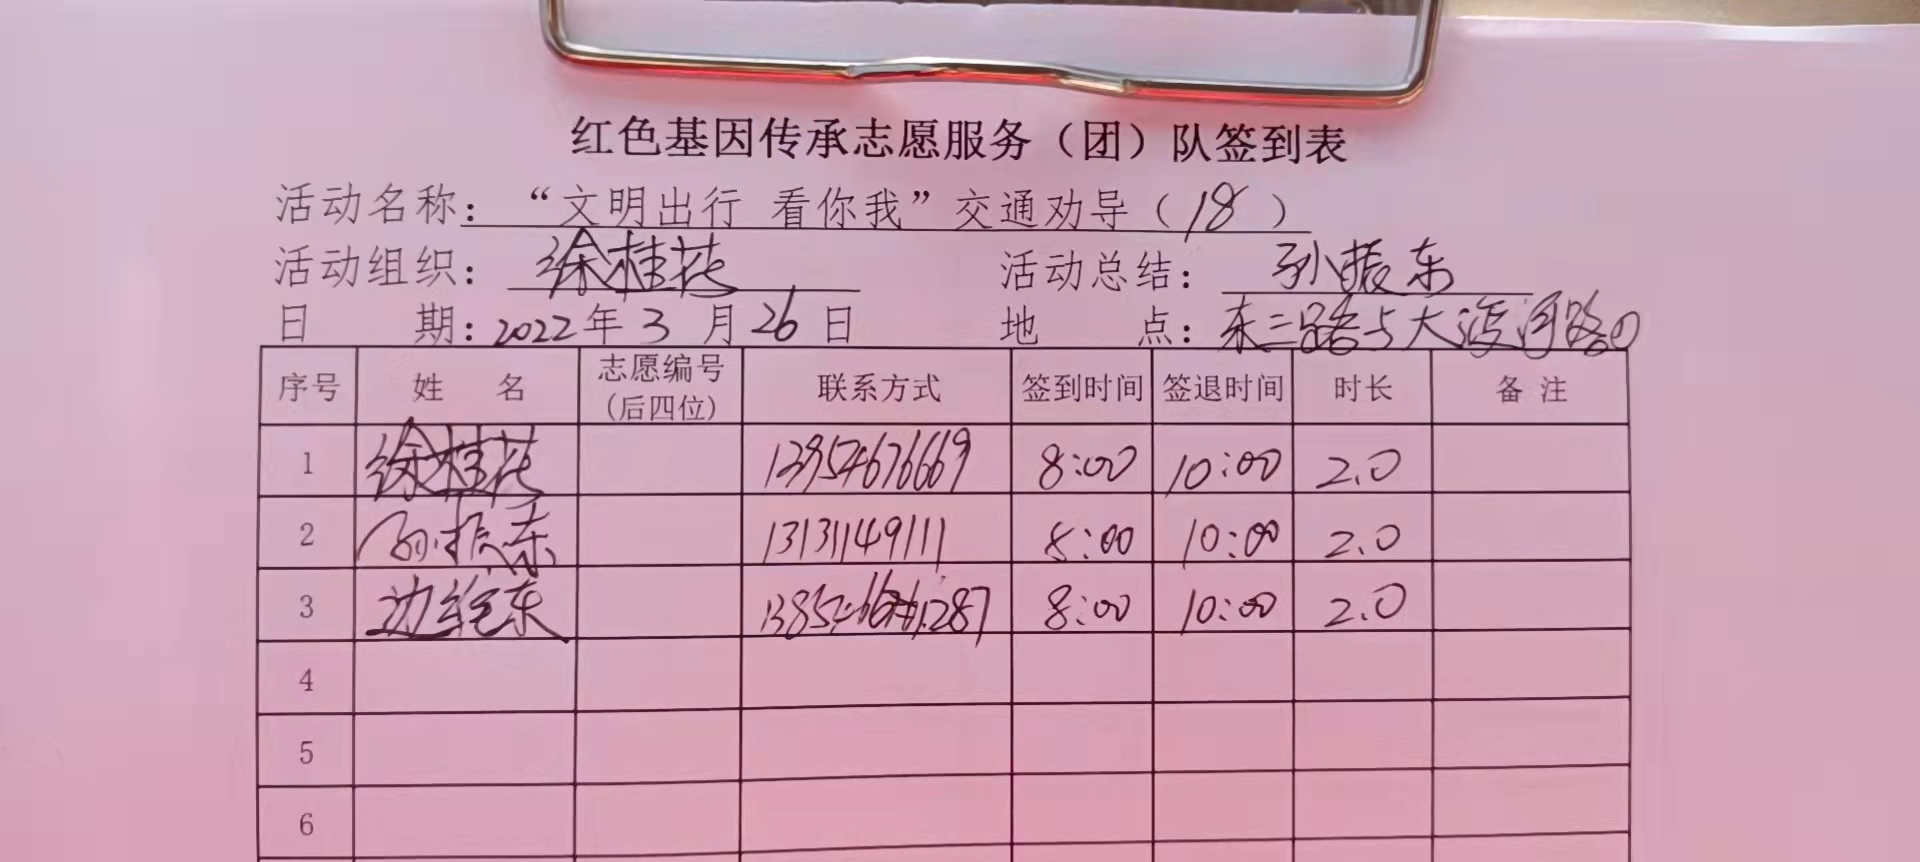 红色基因传承志愿服务（团）队签到表
活动名称：“文明出行 看你我”交通劝导（18）
活动组织：徐桂花 活动总结：孙振东
日 期：2022年3月26日 地 点：东三路与大渡河路口
序号 姓 名 志愿编号(后四位) 联系方式 签到时间 签退时间 时长 备注
1 徐桂花 13954676669 8:00 10:00 2.0
2 孙振东 13131149111 8:00 10:00 2.0
3 边维东 8:00 10:00 2.0
4
5
6